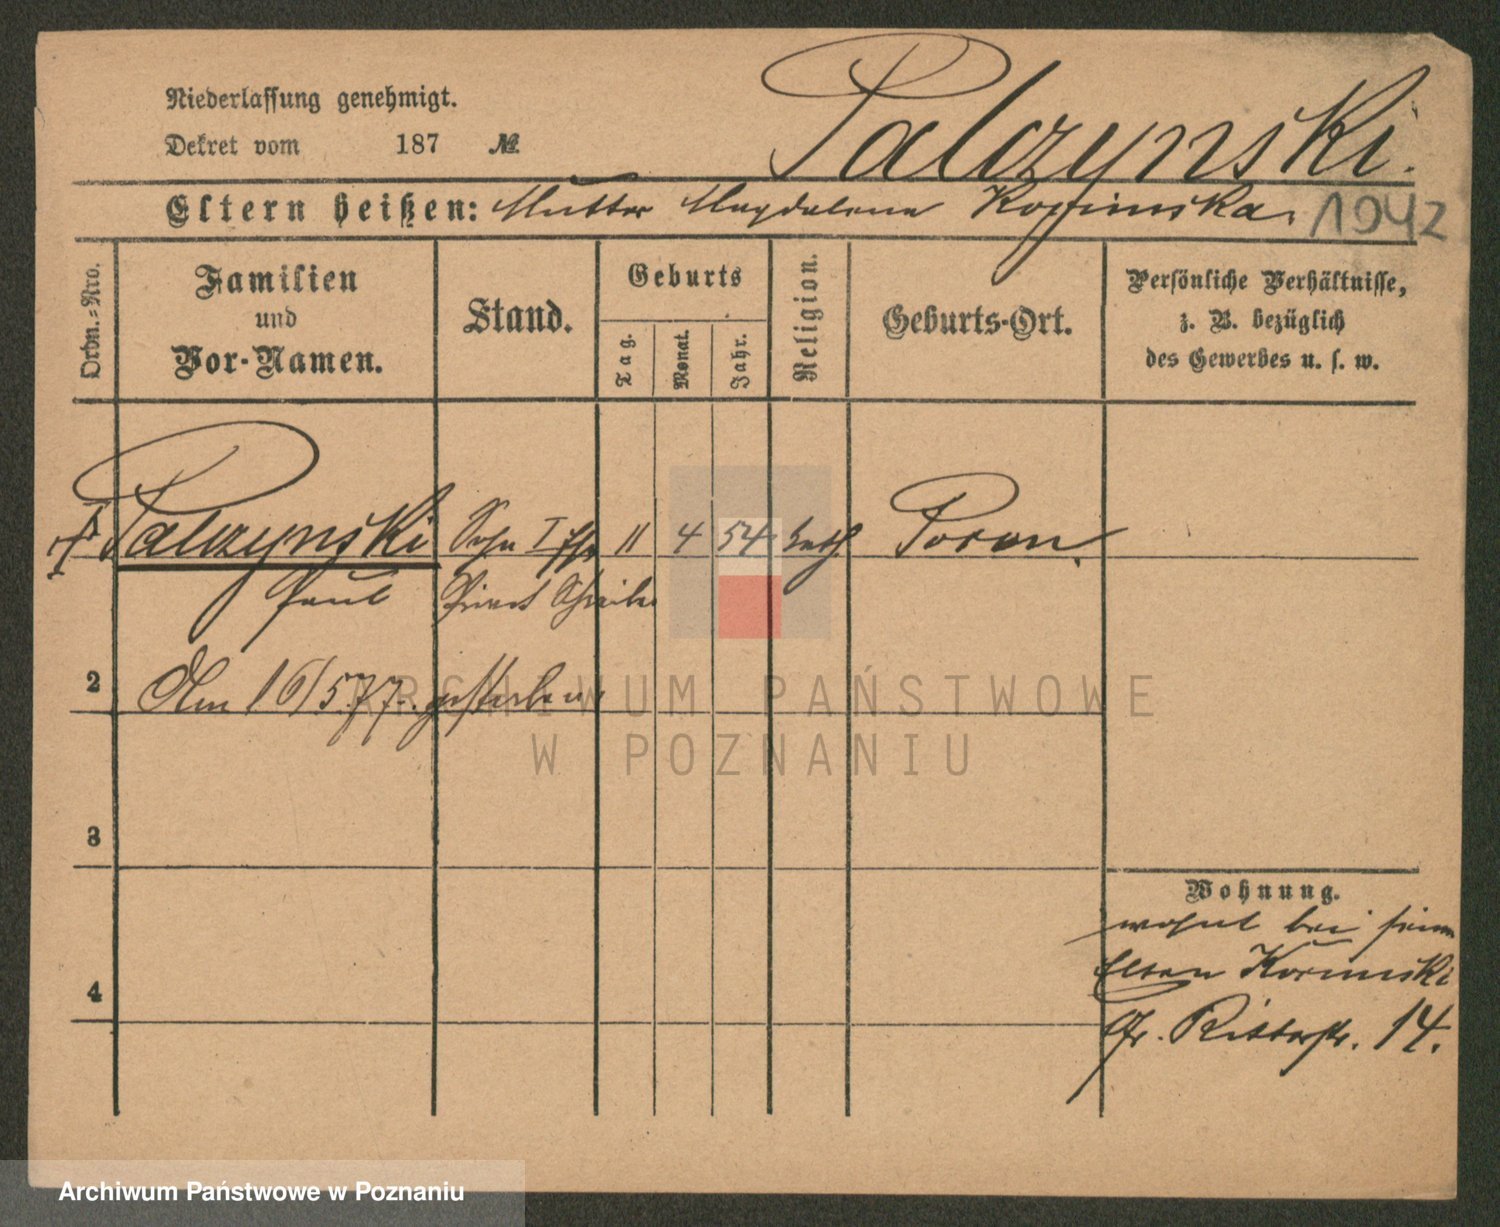 Niederlassung genehmigt.
Dekret vom 187 №
Palczynski.
Eltern heißen: Mutter Magdalena
1942
Ordn.-Nro.
Familien
und
Vor-Namen.
Stand.
Geburts
Tag.
Monat.
Jahr.
Religion.
Geburts-Ort.
Persönliche Verhältnisse,
z. B. bezüglich
des Gewerbes u. s. w.
Palczynski Sohn I 11 4 54 kath Posen
Paul Privat Schreiber
2 Am 16/5 77. gestorben
3
4
Wohnung.
wohnt bei seinen
Eltern
Gr. Ritterstr. 14.
ARCHIWUM PAŃSTWOWE
W POZNANIU
Archiwum Państwowe w Poznaniu